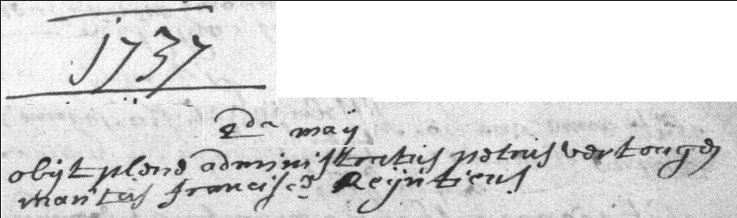 1737
2da maij
obijt plene administratus petrus vertongen
maritus francisca Reijntiens